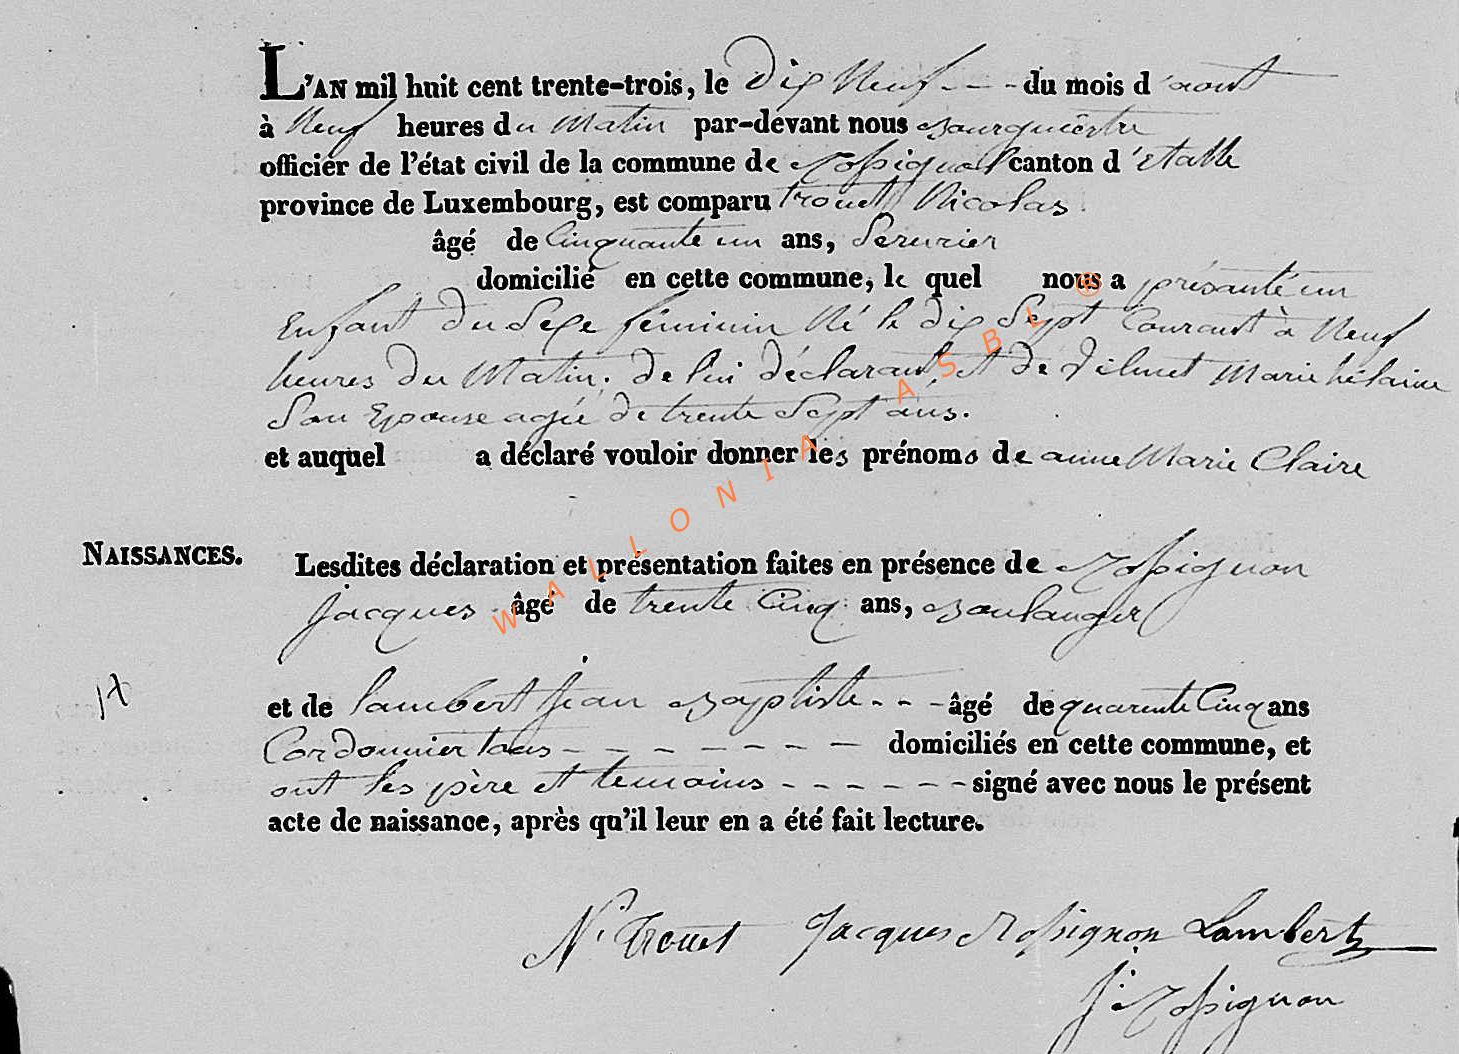 L'AN mil huit cent trente-trois, le Dix Neuf - - - du mois d'aout
à Neuf heures du Matin par-devant nous Bourguèstre
officier de l'état civil de la commune de Rossignol canton d'Etalle
province de Luxembourg, est comparu trouet Nicolas
âgé de Cinquante un ans, Serurier
domicilié en cette commune, le quel nous a présanté un
Enfant du Sexe féminin Né le dix Sept Courant à Neuf
heures du Matin. de lui déclarant, et de Marie hélaine
Son Epouse agée de trente Sept ans.
et auquel a déclaré vouloir donner les prénoms de anne Marie Claire
NAISSANCES. Lesdites déclaration et présentation faites en présence de Rossignon
Jacques âgé de trente Cinq ans, Boulanger
17
et de lambert Jean Baptiste - - - âgé de quarente Cinq ans
Cordonnier tous - - - - - - - - domiciliés en cette commune, et
ont les père et temoins - - - - - - signé avec nous le présent
acte de naissance, après qu'il leur en a été fait lecture.
N. Trouet Jacques Rossignon Lambert
J. Rossignon
WALLONIA ASBL ®